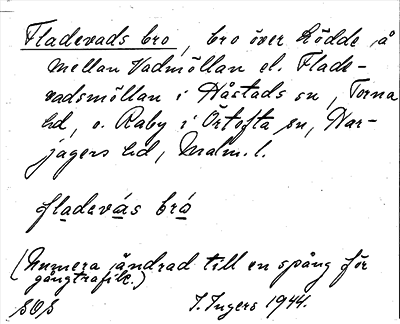 Fladevads bro, bro över Ködde å
mellan Vadmöllan el. Flade-
vadsmöllan i Håstads sn, Torna
hd, o. Råby i Örtofta sn, Har-
jagers hd, Malm. l.
fladevás bró
(Numera ändrad till en spång för
gångtrafik.)
SOS I. Ingers 1944.